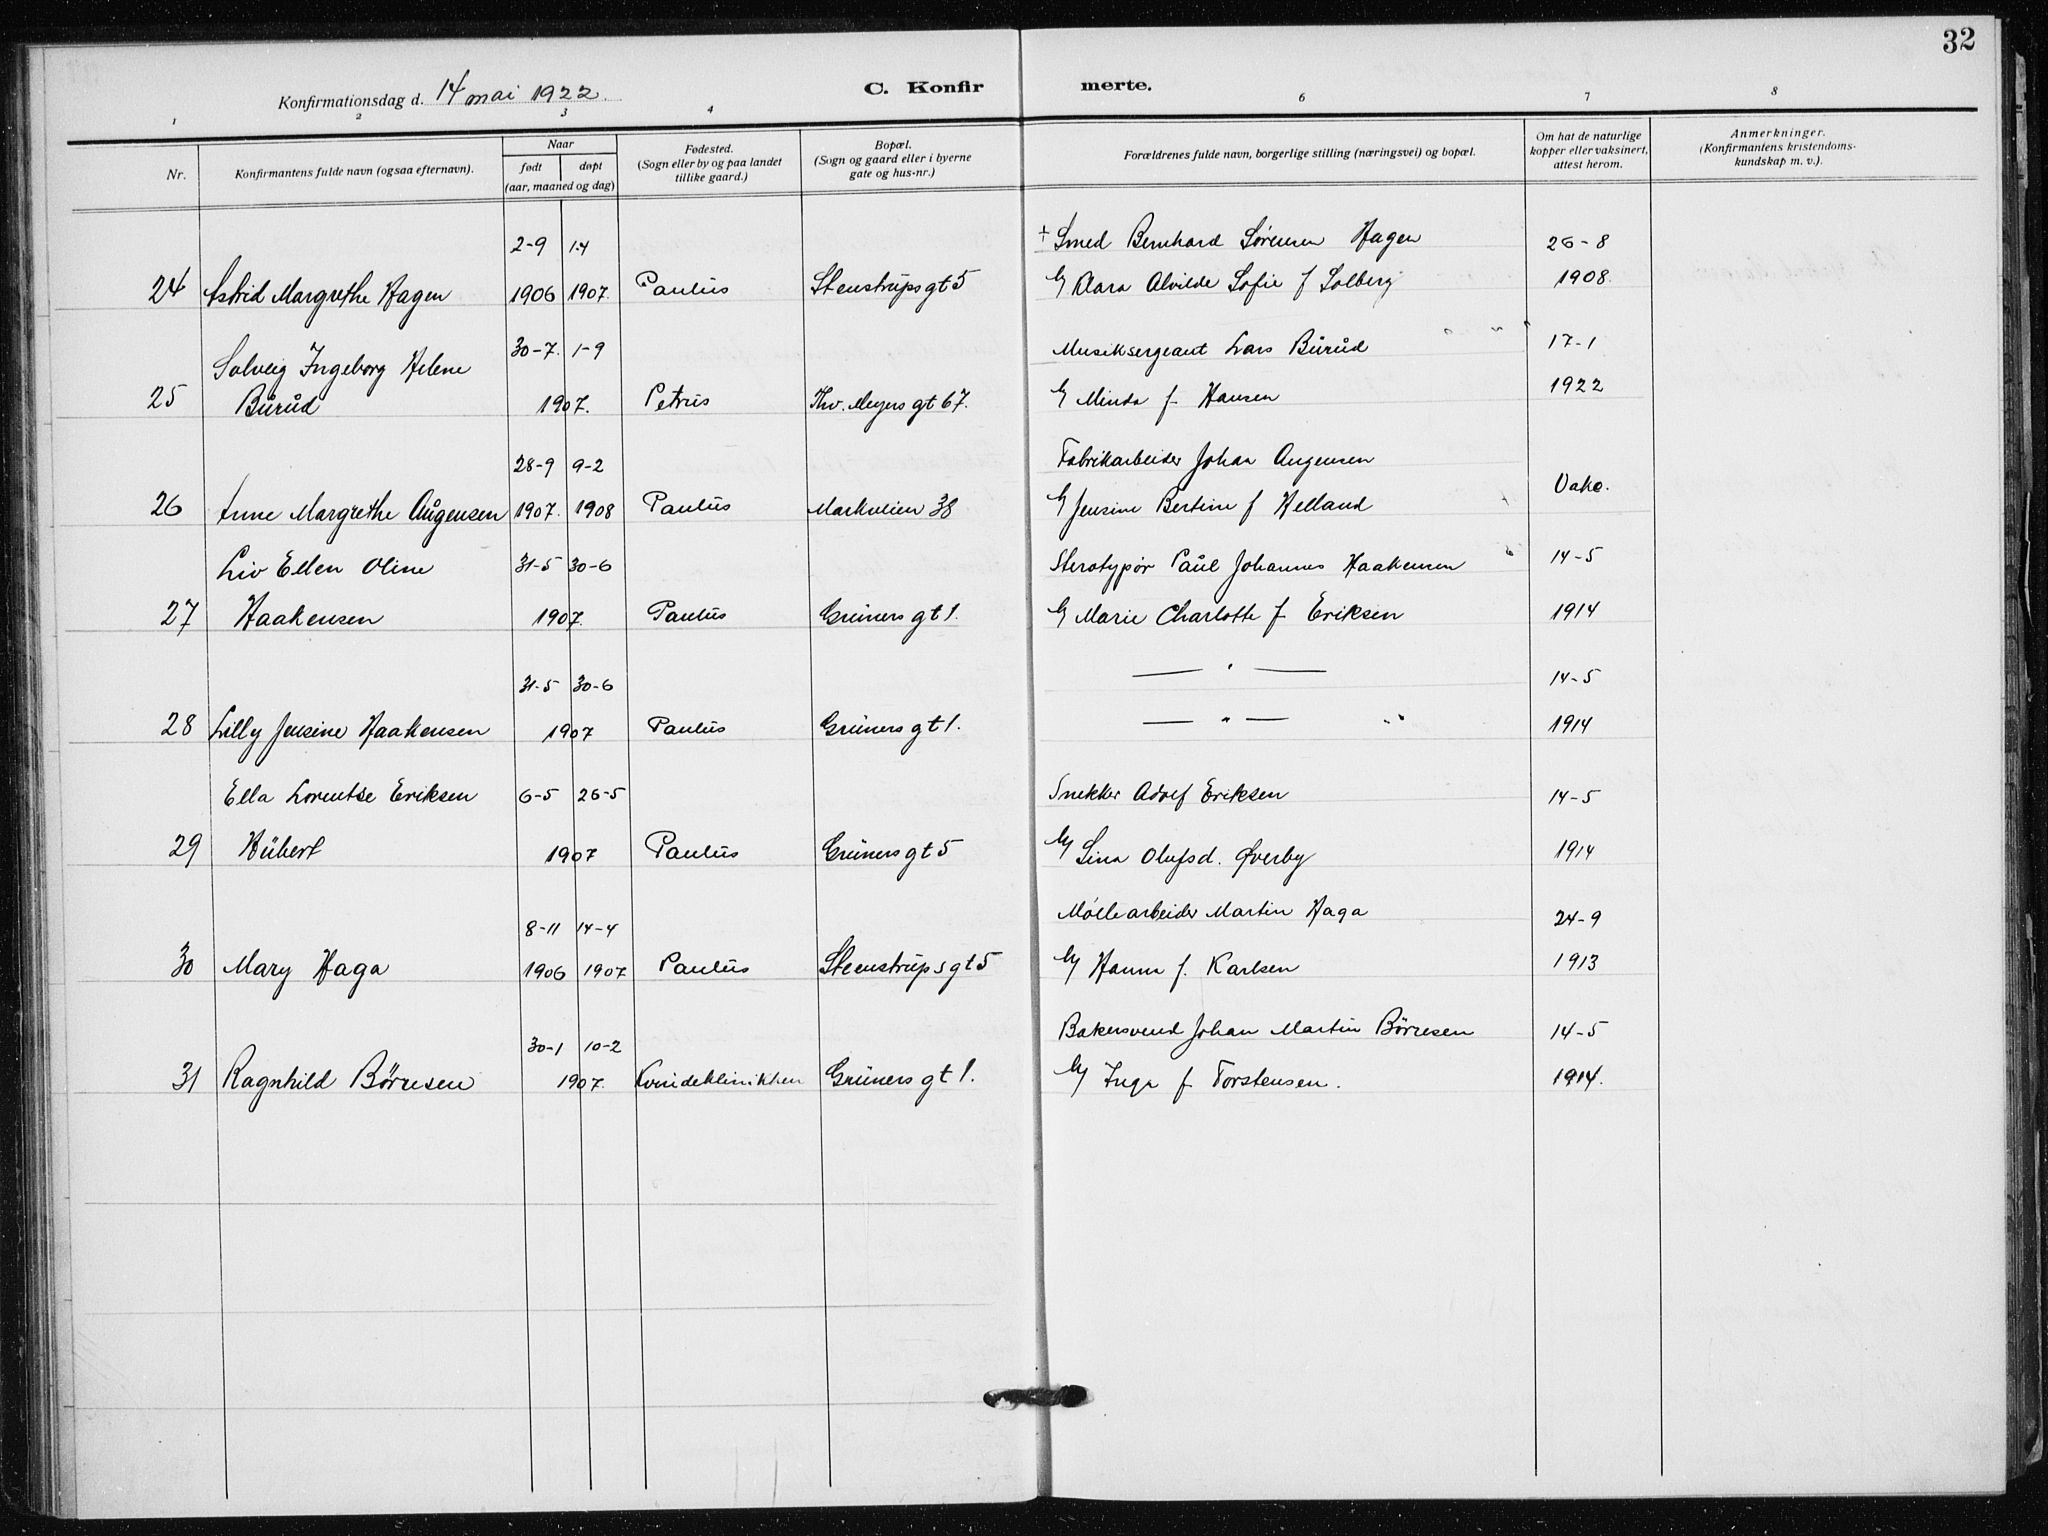 32
Konfirmationsdag d. 14 mai 1922.
C. Konfirmerte.
1 2 3 4 6 7 8
Nr.
Konfirmantens fulde navn (ogsaa efternavn).
Naar
født døpt
(aar, maaned og dag)
Fødested.
(Sogn eller by og paa landet
tillike gaard.)
Bopæl.
(Sogn og gaard eller i byerne
gate og hus-nr.)
Forældrenes fulde navn, borgerlige stilling (næringsvei) og bopæl.
Om hat de naturlige
kopper eller vaksinert,
attest herom.
Anmerkninger.
(Konfirmantens kristendoms-
kundskap m. v.).
2-9 1-4 + Smed Bernhard Sørensen Hagen 26-8
24 Astrid Margrethe Hagen 1906 1907. Paulus Stenstrupsgt 5 Klara Alvilde Sofie f Solberg 1908.
Solveig Ingeborg Helene 30-7. 1-9 Musiksergeant Lars Burud 17-1
25 Burud 1907. Petrus Thv. Meyers gt 67. Minda f. Hansen 1922
28-9 9-2 Fabrikarbeider Johan Augensen
26 Anne Margrethe Augensen 1907. 1908 Paulus Markveien 38 Jensine Bertine f Helland Vakc.
Liv Ellen Oline 31-5 30-6 Sterotypør Paul Johannes Haakensen 14-5
27 Haakensen 1907. Paulus Grüners gt 1. Marie Charlotte f Eriksen 1914
31-5 30-6 — " — 14-5
28 Lilly Jensine Haakensen 1907 Paulus Grüners gt 1. — " — " 1914
Ella Lorentse Eriksen 6-5 26-5 Snekker Adolf Eriksen 14-5
29 Hübert 1907 Paulus Grüners gt 5 Lina Olufsd. Øverby 1914
8-11 14-4 Møllearbeider Martin Haga 24-9
30 Mary Haga 1906 1907 Paulus Steenstrups gt 5 Hanna f. Karlsen 1913
30-1 10-2 Bakersvend Johan Martin Børresen 14-5
31 Ragnhild Børresen 1907. Kvindeklinikken Grüners gt 1. Inga f Torstensen. 1914.